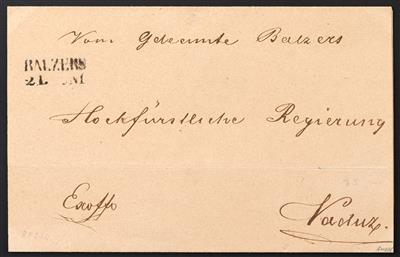 Vom Geleemte Balzers
BALZERS
21. JNI
Hochfürstliche Regierung
Exoffo
Vaduz.